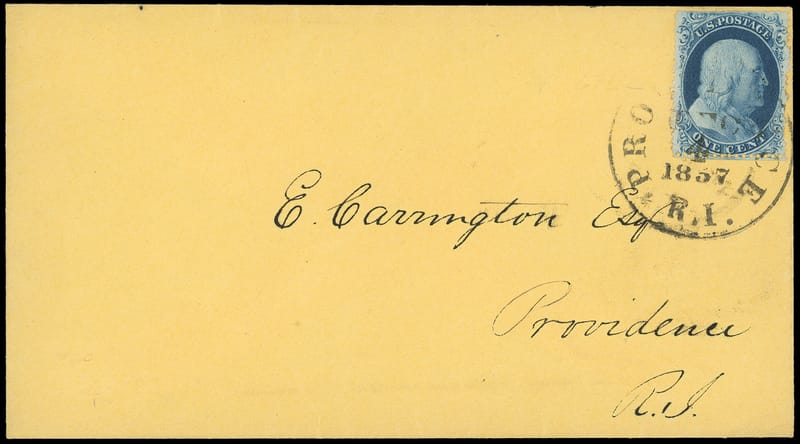 U.S. POSTAGE
ONE CENT
PRO CE
4
1857
R.I.
E. Carrington Esq
Providence
R.I.